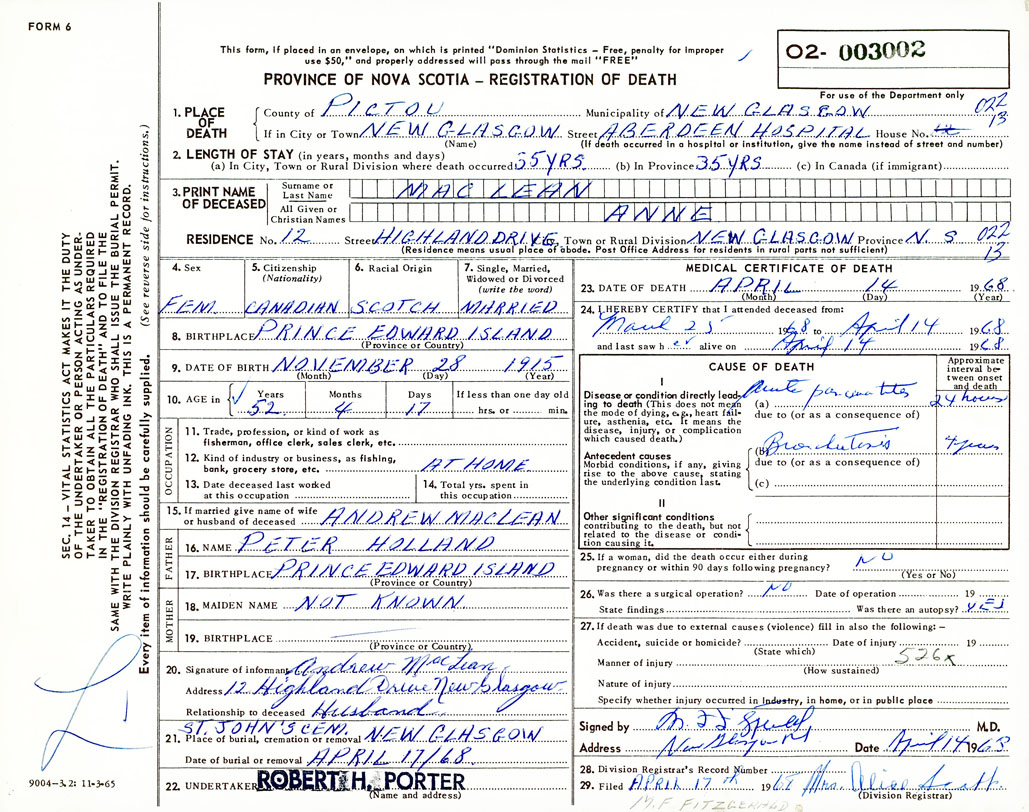 FORM 6
This form, if placed in an envelope, on which is printed "Dominion Statistics – Free, penalty for improper
use $50," and properly addressed will pass through the mail "FREE"
PROVINCE OF NOVA SCOTIA – REGISTRATION OF DEATH
O2- 003002
For use of the Department only
SEC. 14 – VITAL STATISTICS ACT MAKES IT THE DUTY
OF THE UNDERTAKER OR PERSON ACTING AS UNDER-
TAKER TO OBTAIN ALL THE PARTICULARS REQUIRED
IN THE "REGISTRATION OF DEATH" AND TO FILE THE
SAME WITH THE DIVISION REGISTRAR WHO SHALL ISSUE THE BURIAL PERMIT.
WRITE PLAINLY WITH UNFADING INK. THIS IS A PERMANENT RECORD.
Every item of information should be carefully supplied. (See reverse side for instructions.)
1. PLACE OF DEATH County of PICTOU Municipality of NEW GLASGOW 022 13
If in City or Town NEW GLASGOW Street ABERDEEN HOSPITAL House No.
(Name) (If death occurred in a hospital or institution, give the name instead of street and number)
2. LENGTH OF STAY (in years, months and days)
(a) In City, Town or Rural Division where death occurred 35 YRS. (b) In Province 35 YRS (c) In Canada (if immigrant)
3. PRINT NAME OF DECEASED Surname or Last Name MAC LEAN
All Given or Christian Names ANNE
RESIDENCE No. 12 Street HIGHLAND DRIVE, Town or Rural Division NEW GLASGOW Province N. S 022 13
(Residence means usual place of abode. Post Office Address for residents in rural parts not sufficient)
4. Sex 5. Citizenship (Nationality) 6. Racial Origin 7. Single, Married, Widowed or Divorced (write the word)
FEM. CANADIAN SCOTCH MARRIED
8. BIRTHPLACE PRINCE EDWARD ISLAND
(Province or Country)
9. DATE OF BIRTH NOVEMBER 28 1915
(Month) (Day) (Year)
10. AGE in Years Months Days If less than one day old
52 4 17 hrs. or min.
OCCUPATION
11. Trade, profession, or kind of work as
fisherman, office clerk, sales clerk, etc.
12. Kind of industry or business, as fishing,
bank, grocery store, etc. AT HOME
13. Date deceased last worked
at this occupation
14. Total yrs. spent in
this occupation
15. If married give name of wife
or husband of deceased ANDREW MACLEAN
FATHER
16. NAME PETER HOLLAND
17. BIRTHPLACE PRINCE EDWARD ISLAND
(Province or Country)
MOTHER
18. MAIDEN NAME NOT KNOWN
19. BIRTHPLACE
(Province or Country)
20. Signature of informant Andrew MacLean
Address 12 Highland Drive New Glasgow
Relationship to deceased Husband
ST. JOHN'S CEM.
21. Place of burial, cremation or removal NEW GLASGOW
Date of burial or removal APRIL 17/68
22. UNDERTAKER ROBERT H. PORTER
(Name and address)
9004–3.2: 11-3-65
MEDICAL CERTIFICATE OF DEATH
23. DATE OF DEATH APRIL 14 1968
(Month) (Day) (Year)
24. I HEREBY CERTIFY that I attended deceased from:
25 1968 to April 14 1968
and last saw her alive on April 14 1968
CAUSE OF DEATH
Approximate interval between onset and death
I
Disease or condition directly leading to death (This does not mean
the mode of dying, e.g., heart failure, asthenia, etc. It means the
disease, injury, or complication
which caused death.)
(a) Acute 24 hours
due to (or as a consequence of)
Antecedent causes
Morbid conditions, if any, giving
rise to the above cause, stating
the underlying condition last.
(b) 4 years
due to (or as a consequence of)
(c)
II
Other significant conditions
contributing to the death, but not
related to the disease or condition causing it.
25. If a woman, did the death occur either during
pregnancy or within 90 days following pregnancy? NO
(Yes or No)
26. Was there a surgical operation? NO Date of operation 19
State findings Was there an autopsy? YES
27. If death was due to external causes (violence) fill in also the following: –
Accident, suicide or homicide? Date of injury 19
(State which)
Manner of injury 526x
(How sustained)
Nature of injury
Specify whether injury occurred in Industry, in home, or in public place
Signed by M.D.
Address New Glasgow NS Date April 14 1968
28. Division Registrar's Record Number
29. Filed APRIL 17th 1968 Mrs. Alice Scott
(Division Registrar)
M.F. FITZGERALD